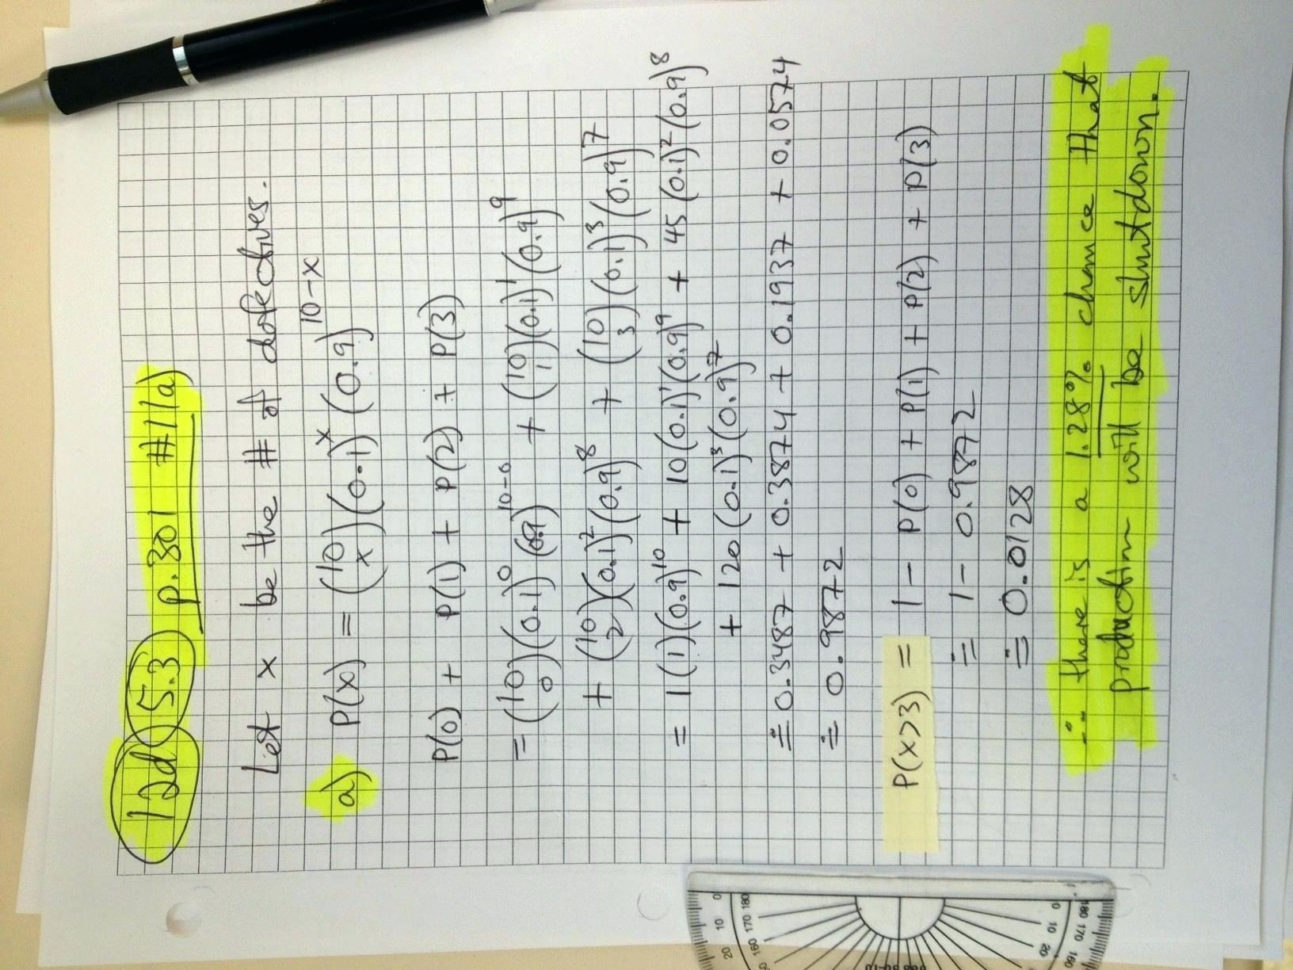 12d 5.3 p.301 #11a)
Let x be the # of defectives.
a) P(x) = (10 x)(0.1)^x (0.9)^10-x
P(0) + P(1) + P(2) + P(3)
= (10 0)(0.1)^0 (0.9)^10-0 + (10 1)(0.1)^1 (0.9)^9
+ (10 2)(0.1)^2 (0.9)^8 + (10 3)(0.1)^3 (0.9)^7
= 1(1)(0.9)^10 + 10(0.1)^1 (0.9)^9 + 45(0.1)^2 (0.9)^8
+ 120(0.1)^3 (0.9)^7
≐ 0.3487 + 0.3874 + 0.1937 + 0.0574
≐ 0.9872
P(x>3) = 1 - P(0) + P(1) + P(2) + P(3)
≐ 1 - 0.9872
≐ 0.0128
∴ there is a 1.28% chance that
production will be shutdown.
0 10 20
180 170 160
180 170 160
0 10 20